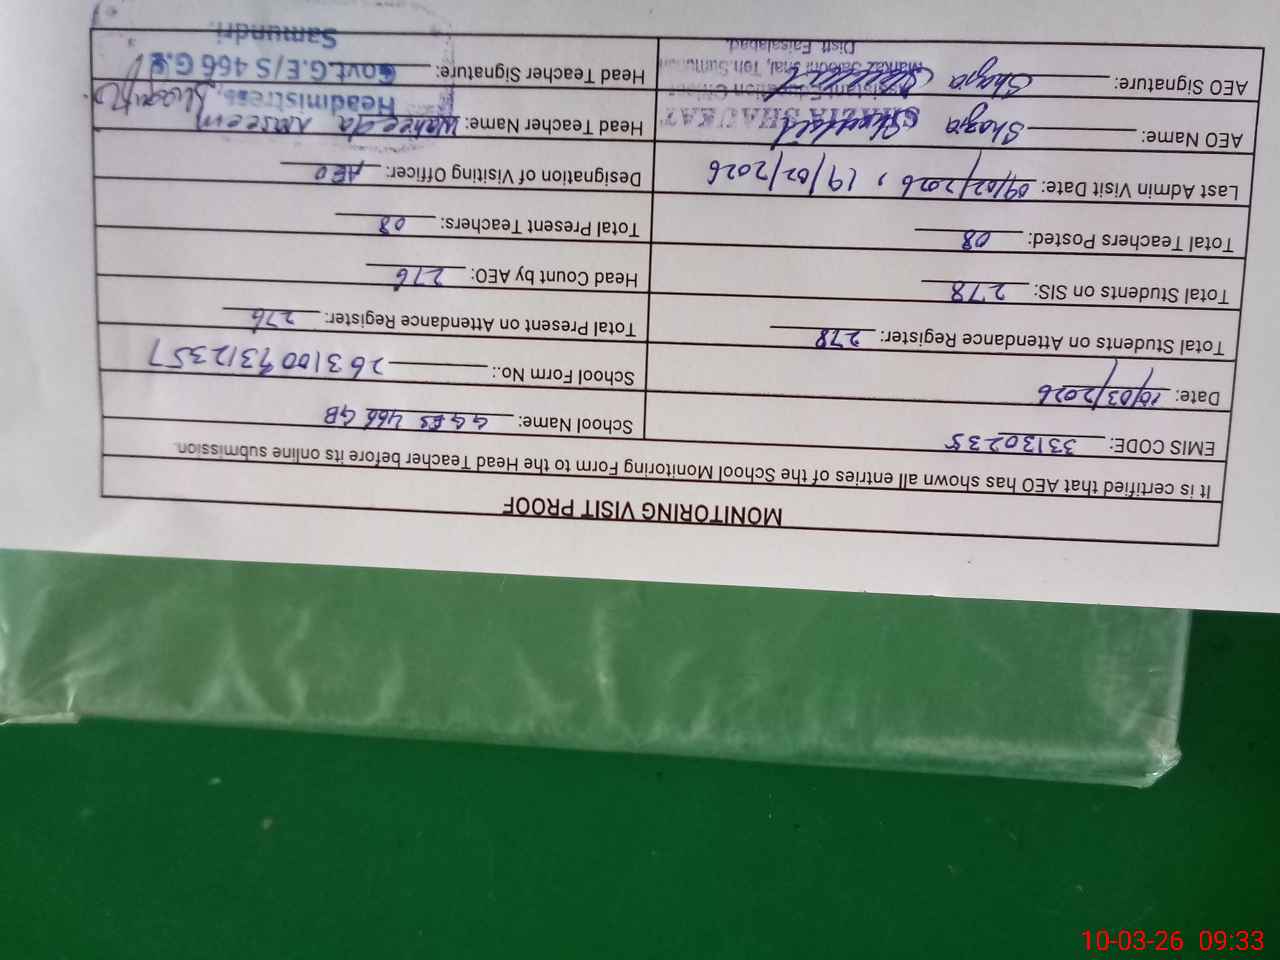 MONITORING VISIT PROOF
It is certified that AEO has shown all entries of the School Monitoring Form to the Head Teacher before its online submission.
EMIS CODE: 33130235
School Name: GGES 466 GB
Date: 10/03/2026
School Form No.:
Total Students on Attendance Register: 278
Total Present on Attendance Register: 276
Total Students on SIS: 278
Head Count by AEO: 276
Total Teachers Posted: 08
Total Present Teachers: 08
Last Admin Visit Date: 09/02/2026, 19/02/2026
Designation of Visiting Officer: AEO
AEO Name: Shazia
SHAZIA SHAUKAT
Head Teacher Name: Waheeda Naseem
AEO Signature: Shazia
Distt. Faisalabad.
Head Teacher Signature:
Headmistress,
Govt.G.E/S 466 G.B
Samundri.
10-03-26 09:33